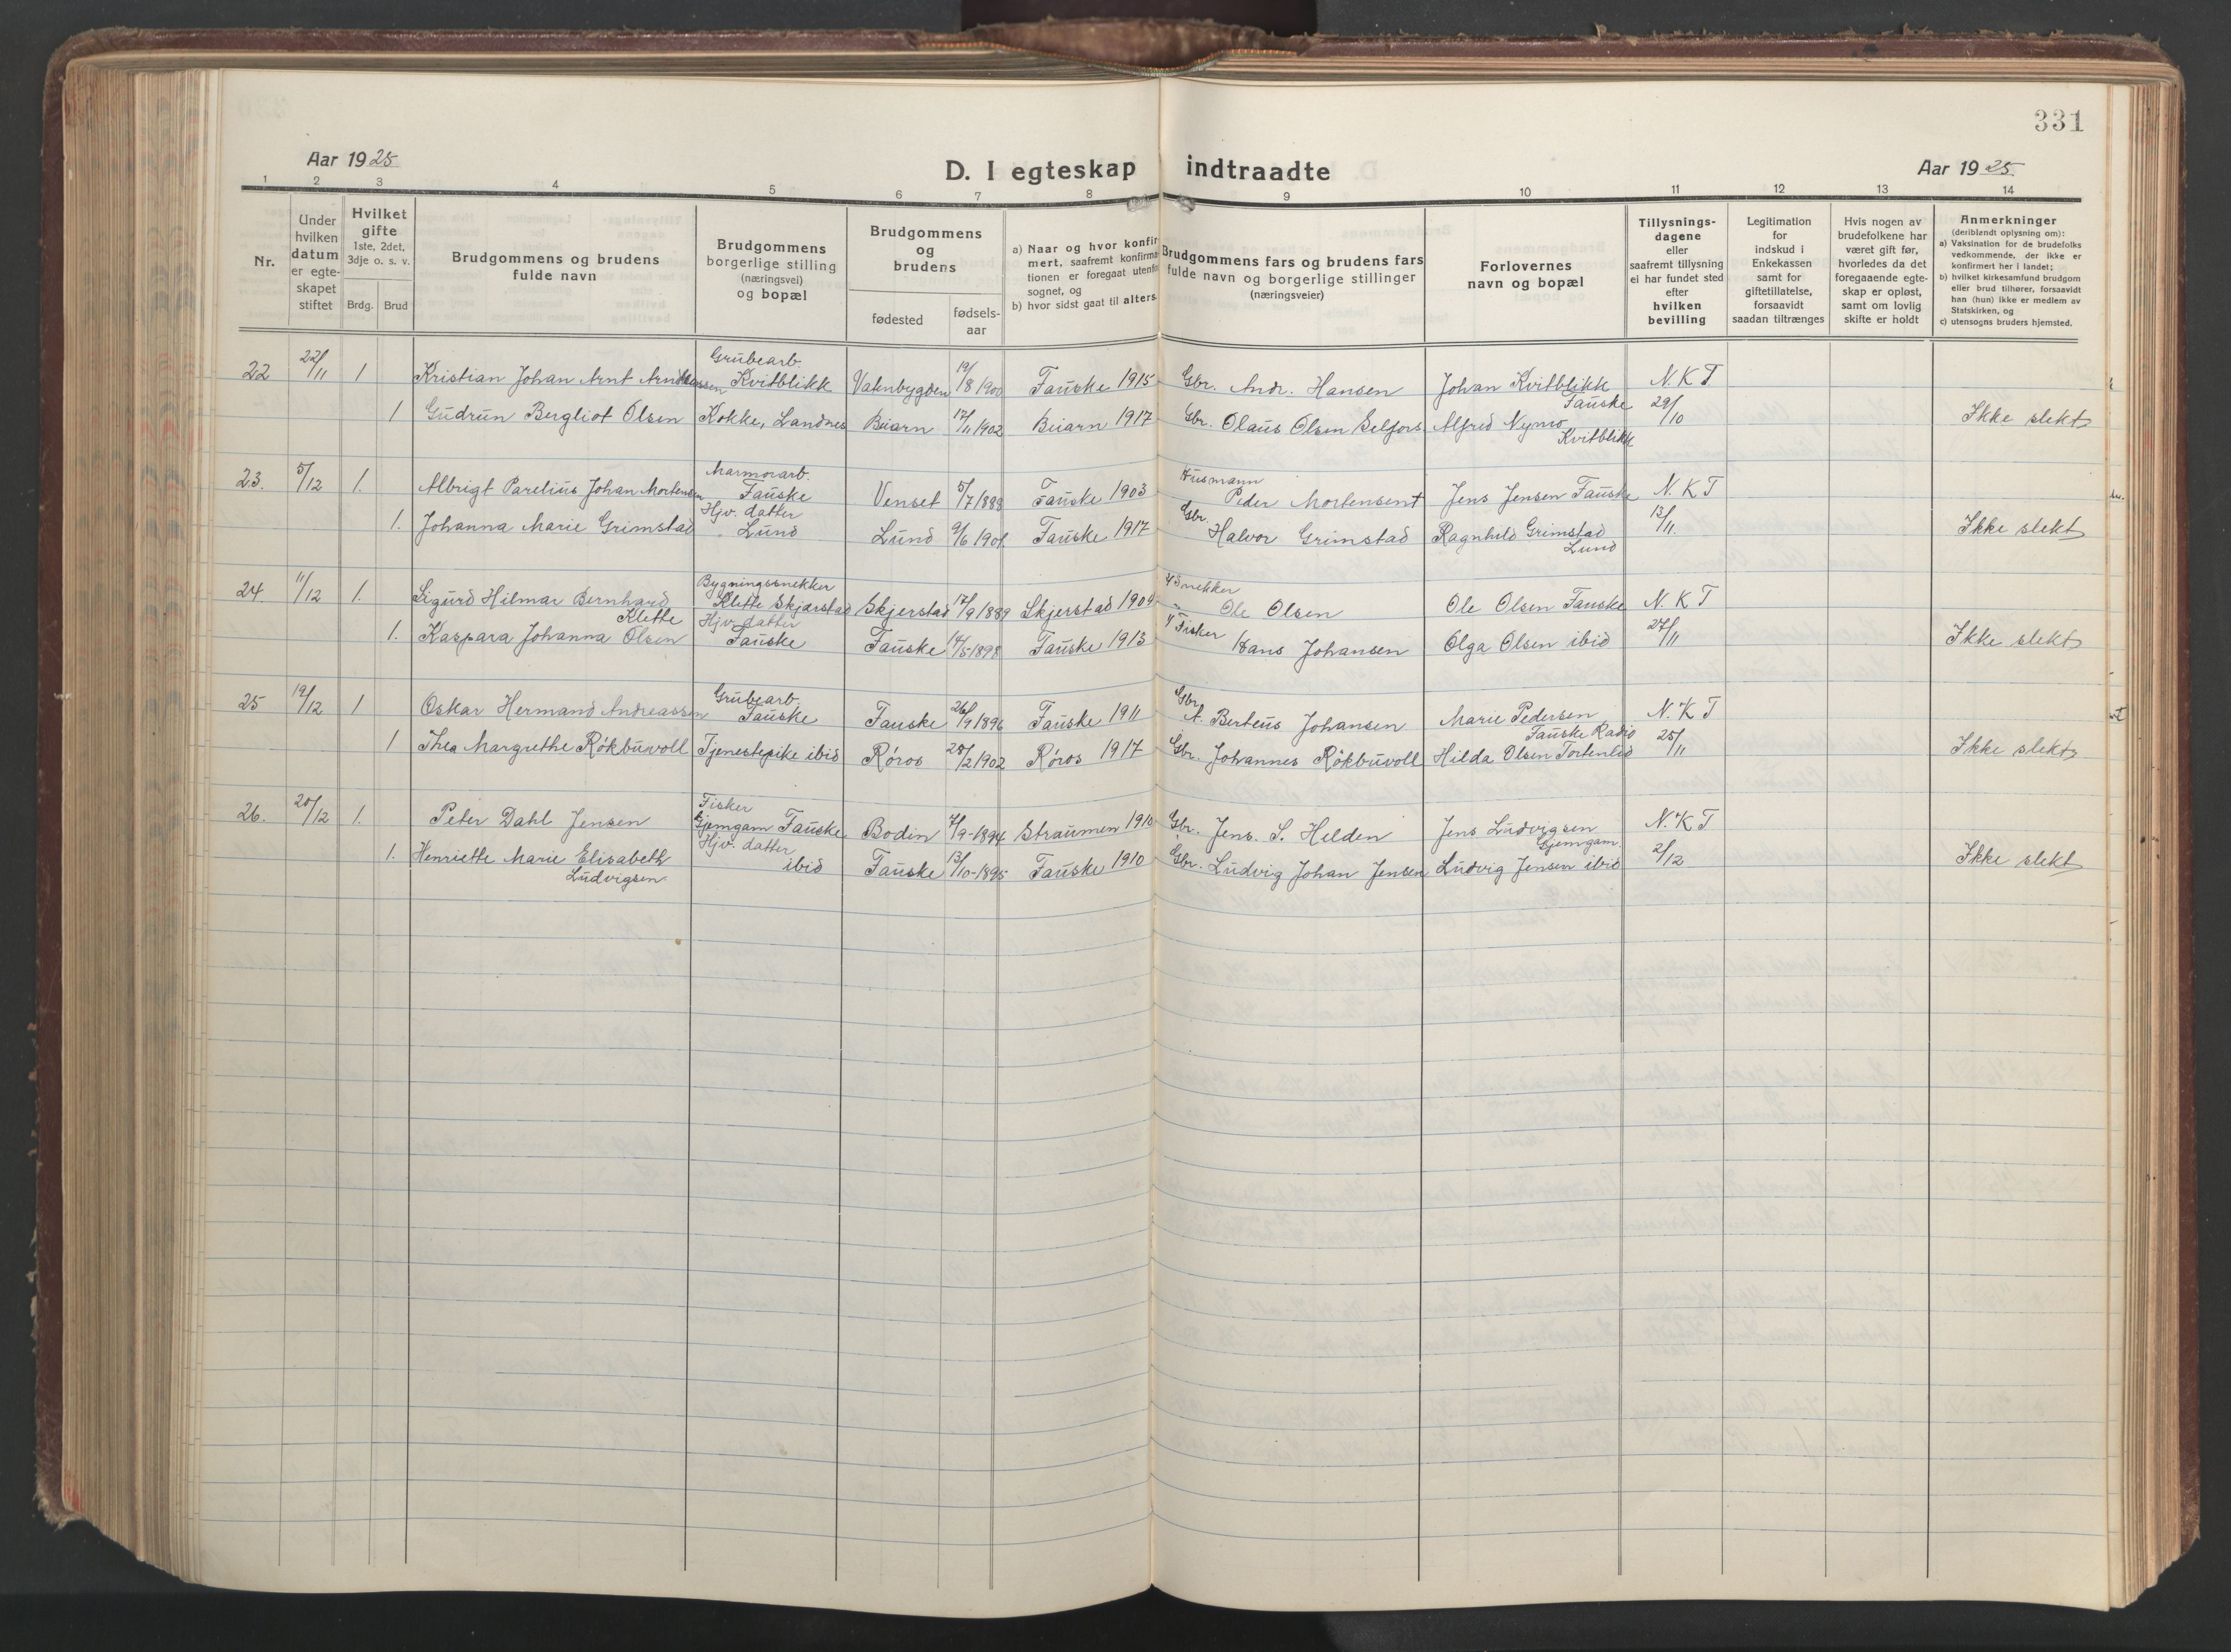 331
Aar 1925
D. I egteskap indtraadte
Aar 1925.
1 2 3 4 5 6 7 8 9 10 11 12 13 14
Nr.
Under hvilken datum er egteskapet stiftet
Hvilket gifte 1ste, 2det, 3dje o. s. v.
Brdg. Brud
Brudgommens og brudens fulde navn
Brudgommens borgerlige stilling (næringsvei) og bopæl
Brudgommens og brudens
fødested
fødsels-aar
a) Naar og hvor konfirmert, saafremt konfirmationen er foregaat utenfor sognet, og
b) hvor sidst gaat til alters.
Brudgommens fars og brudens fars fulde navn og borgerlige stillinger (næringsveier)
Forlovernes navn og bopæl
Tillysnings-dagene eller saafremt tillysning ei har fundet sted efter hvilken bevilling
Legitimation for indskud i Enkekassen samt for giftetillatelse, forsaavidt saadan tiltrænges
Hvis nogen av brudefolkene har været gift før, hvorledes da det foregaaende egteskap er opløst, samt om lovlig skifte er holdt
Anmerkninger (deriblandt oplysning om):
a) Vaksination for de brudefolks vedkommende, der ikke er konfirmert her i landet;
b) hvilket kirkesamfund brudgom eller brud tilhører, forsaavidt han (hun) ikke er medlem av Statskirken, og
c) utensogns bruders hjemsted.
22 22/11 1 Kristian Johan Arnt Grubearb. Kvitblikk Vatnbygden 19/8 1900 Fauske 1915 Gbr. Andr. Hansen Johan Kvitblikk Fauske N. K T
1 Gudrun Bergliot Olsen Kokke, Landnes Beiarn 17/11 1902 Beiarn 1917 Gbr. Olaus Olsen Selfors Alfred Nymo Kvitblikk 29/10 Ikke slekt
23. 5/12 1. Albrigt Parelius Johan Mortensen Marmorarb. Fauske Venset 5/7 1888 Fauske 1903 Husmann Peder Mortensen † Jens Jensen Fauske N. K T
1. Johanna Marie Grimstad Hjv. datter Lund Lund 9/6 1901 Fauske 1917 Gbr. Halvor Grimstad Ragnhild Grimstad Lund 13/11. Ikke slekt
24 11/12 1. Sigurd Hilmar Bernhard Klette Bygningssnekker Klette Skjærstad Skjerstad 17/9 1889 Skjerstad 1904 Snekker Ole Olsen Ole Olsen Fauske N. K T
1. Kaspara Johanna Olsen Hjv. datter Fauske Fauske 14/5-1898 Fauske 1913 Fisker Hans Johansen Olga Olsen ibid 27/11 Ikke slekt
25 19/12 1 Oskar Hermand Andreassen Grubearb. Fauske Fauske 26/9 1896 Fauske 1911 Gbr. A. Berteus Johansen Marie Pedersen Fauske Radio N. K T
1 Thea Margrethe Rökbuvoll Tjenestepike ibid Röros 28/2 1902 Röros 1917 Gbr. Johannes Rökbuvoll Hilda Olsen Tortenlid 25/11 Ikke slekt
26. 20/12 1. Peter Dahl Jensen Fisker Gjemgam Fauske Bodin 4/9-1894 Straumen 1910 Gbr. Jens. S. Helden Jens Ludvigsen Gjemgam. N. K T
1. Henriette Marie Elisabeth Ludvigsen Hjv. datter ibid Fauske 13/10-1895 Fauske 1910 Gbr. Ludvig Johan Jensen Ludvig Jensen ibid 2/12 Ikke slekt